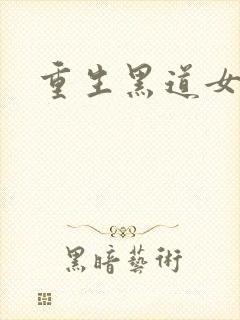 重生黑道女
黑暗藝術